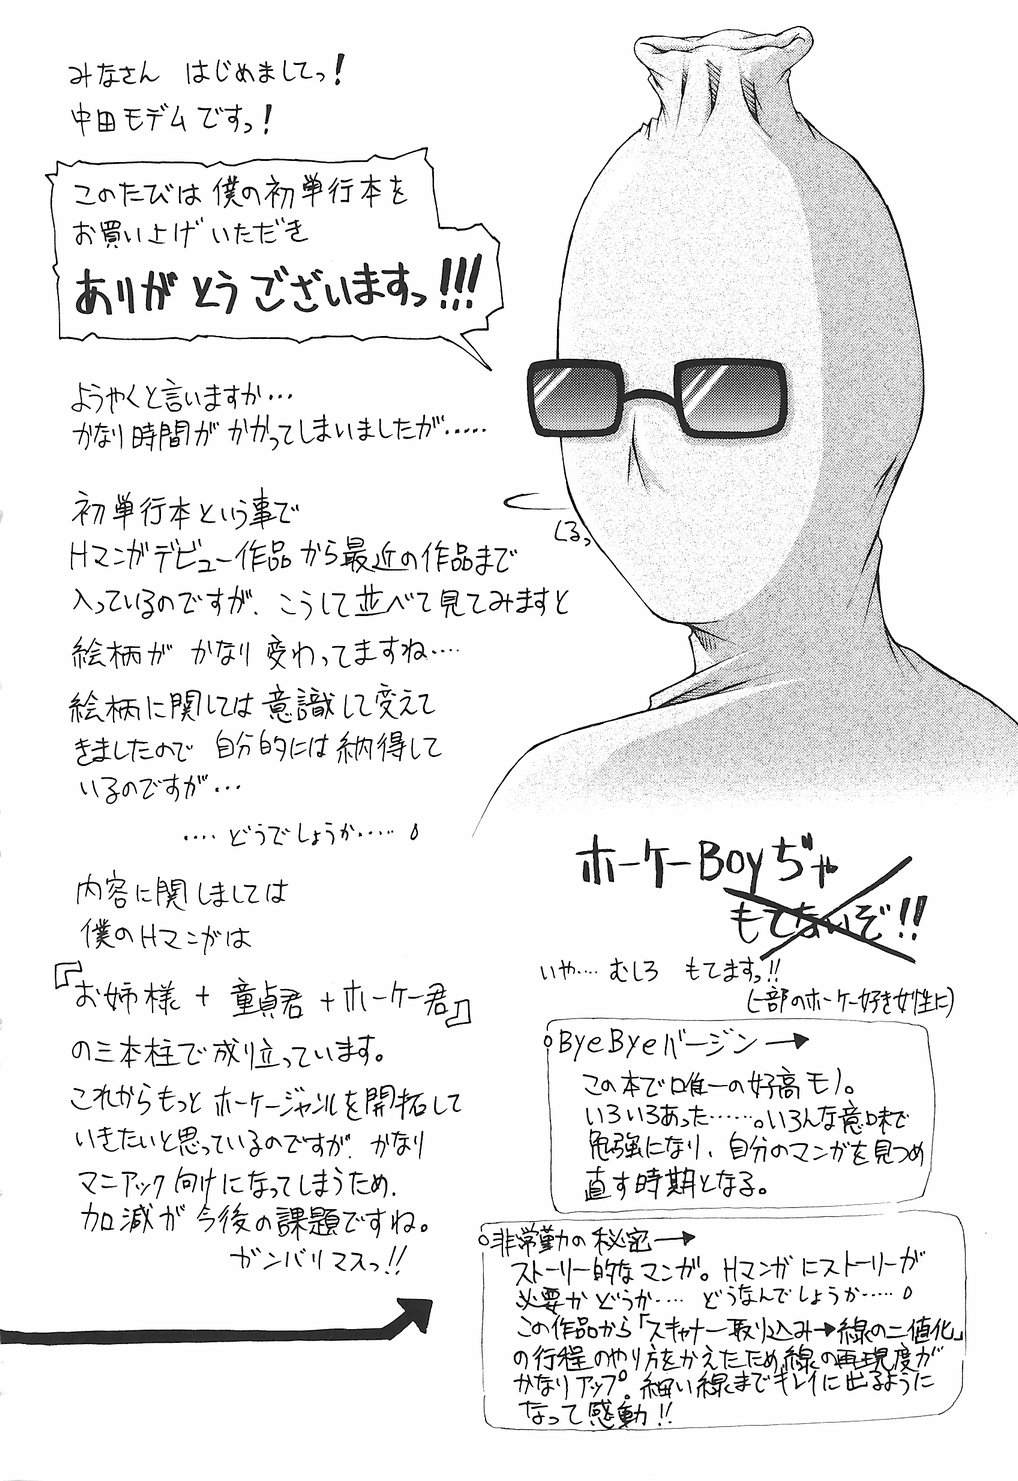 みなさん はじめましてっ!
中田モデムですっ!
このたびは僕の初単行本を
お買い上げいただき
ありがとうございますっ!!!
ようやくと言いますか…
かなり時間がかかってしまいましたが……
初単行本という事で
Hマンガデビュー作品から最近の作品まで
入っているのですが、こうして並べて見てみますと
絵柄が かなり変わってますね……
絵柄に関しては意識して変えて
きましたので 自分的には納得して
いるのですが…
……どうでしょうか……
内容に関しましては
僕のHマンガは
『お姉様+童貞君+ホーケー君』
の三本柱で成り立っています。
これからもっとホーケージャンルを開拓して
いきたいと思っているのですが、かなり
マニアック向けになってしまうため、
加減が今後の課題ですね。
ガンバリマスっ!!
くるっ
ホーケーBoyぢゃ
もてないぞ!!
いや…… むしろ もてますっ!!
(一部のホーケー好き女性に)
○ByeByeバージン→
この本で唯一の好高モノ。
いろいろあった……。いろんな意味で
勉強になり、自分のマンガを見つめ
直す時期となる。
○非常勤の秘密→
ストーリー的なマンガ。Hマンガにストーリーが
必要かどうか…… どうなんでしょうか……
この作品から「スキャナー取り込み→線の二値化」
の行程のやり方をかえたため、線の再現度が
かなりアップ。細い線までキレイに出るように
なって感動!!